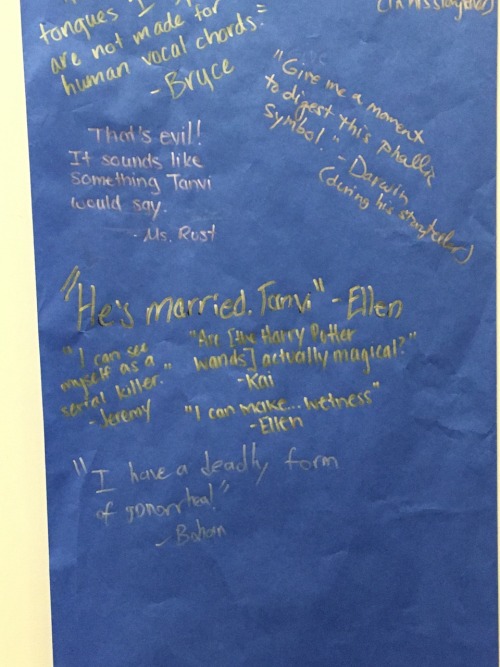 tongues I
are not made for
human vocal chords."
- Bryce
"Give me a moment
to digest this phallic
symbol." - Darwin
(during his storyteller)
That's evil!
It sounds like
something Tanvi
would say.
- Ms. Rust
"He's married, Tanvi" - Ellen
"I can see
myself as a
serial killer."
- Jeremy
"Are [the Harry Potter
wands] actually magical?"
- Kai
"I can make... wetness"
- Ellen
"I have a deadly form
of gonorrhea!"